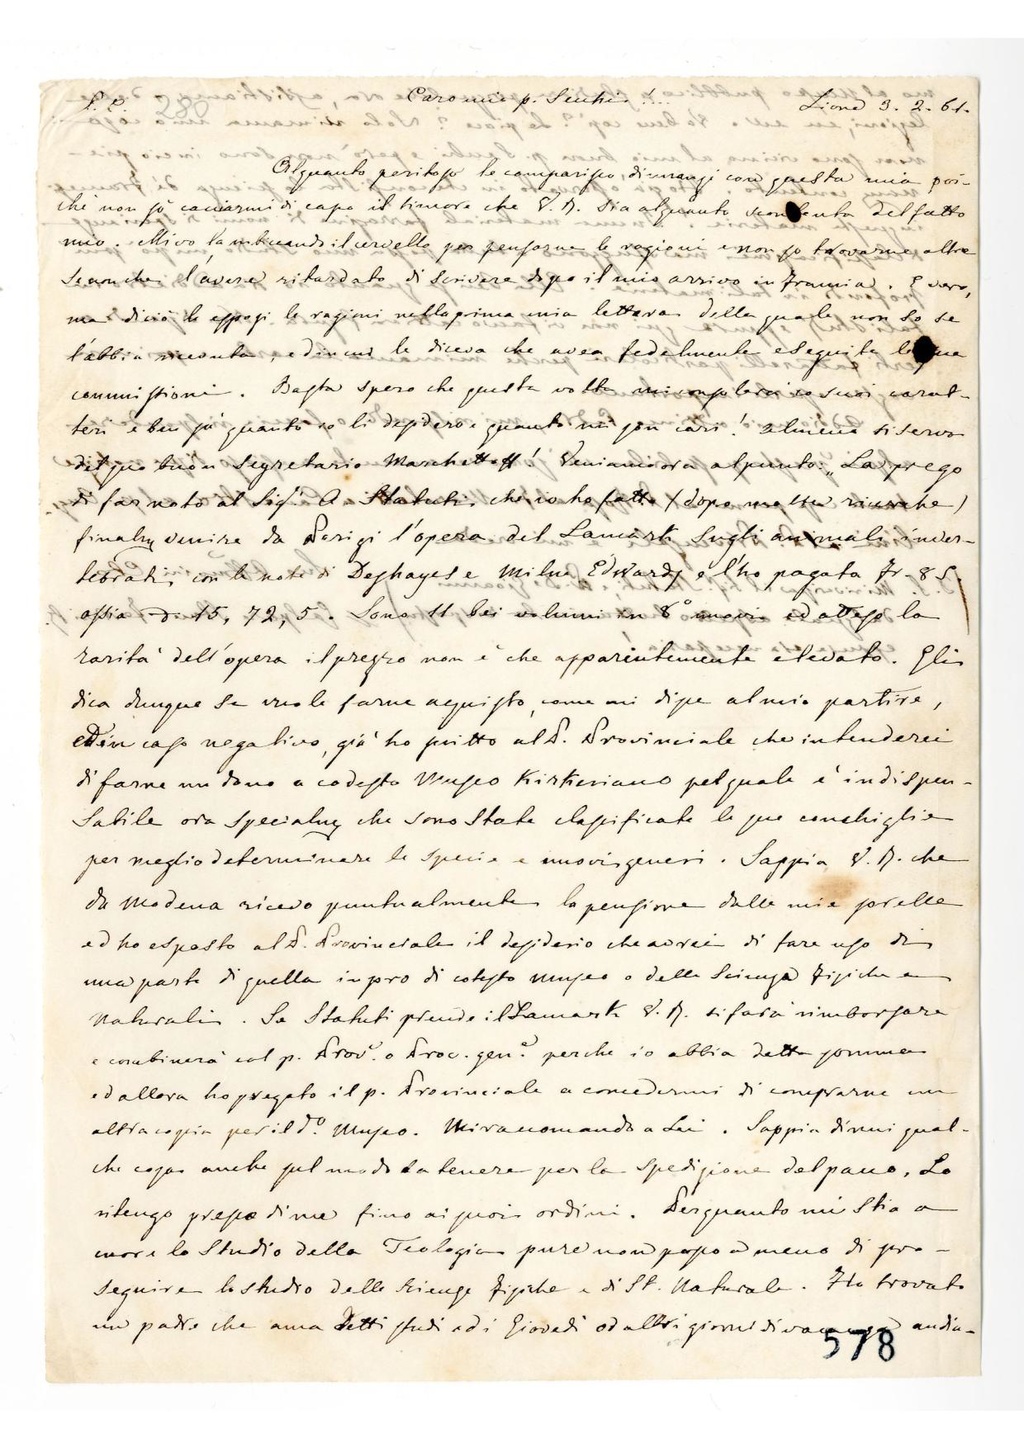 P. C. Caro mio p. Secchi Lione 3. 2. 61.
Alquanto peritoso le comparisco dinnanzi con questa mia poi-
che non so cacciarmi di capo il timore che V. R. sia alquanto scontenta del fatto
mio. Mi vo lambiccando il cervello per pensarne le ragioni e non so trovarne altre
senonche l'avere ritardato di scrivere dopo il mio arrivo in Francia. È vero,
ma di ciò le esposi le ragioni nella prima mia lettera della quale non so se
l'abbia ricevuta, e in cui le diceva che avea fedelmente eseguite le sue
commissioni. Basta spero che questa volta mi consolerà co' suoi carat-
teri e ben sa quanto io li desidero e quanto mi son cari! almeno si serva
del suo buon Segretario Marchetti! Veniamo ora al punto: La prego
di far noto al Sig. A. Statuti che io ho fatto (dopo molte ricerche)
finalm. venire da Parigi l'opera del Lamark sugli animali inver-
tebrati, con le note di Deshayes e Milne Edwards e l'ho pagata Fr. 85
ossia 15, 72, 5. Sono 11 bei volumi in 8° nuovi ed atteso la
rarità dell'opera il prezzo non è che apparentemente elevato. Gli
dica dunque se vuole farne acquisto, come mi disse al mio partire,
ed in caso negativo, già ho scritto al P. Provinciale che intenderei
di farne un dono a codesto Museo Kirkeriano pel quale è indispen-
sabile ora specialm. che sono state classificate le sue conchiglie
per meglio determinare le specie e nuovi generi. Sappia V. R. che
da Modena ricevo puntualmente la pensione dalle mie sorelle
ed ho esposto al P. Provinciale il desiderio che avrei di fare uso di
una parte di quella in pro di cotesto Museo o delle Scienze Fisiche e
Naturali. Se Statuti prende il Lamark V. R. si farà rimborsare
e combinerà col p. Prov. o Proc. gen. perche io abbia detta somma
ed allora ho pregato il p. Provinciale a concedermi di comprarne un
altra copia per il d.° Museo. Mi raccomando a Lei. Sappia dirmi qual-
che cosa anche sul modo da tenere per la spedizione del pacco. Lo
ritengo presso di me fino ai suoi ordini. Per quanto mi stia a
cuore lo studio della Teologia pure non posso a meno di pro-
seguire lo studio delle Scienze Fisiche e di St. Naturale. Ho trovato
un padre che ama detti studi ed i Giovedì od altri giorni di vacanza andia-
578